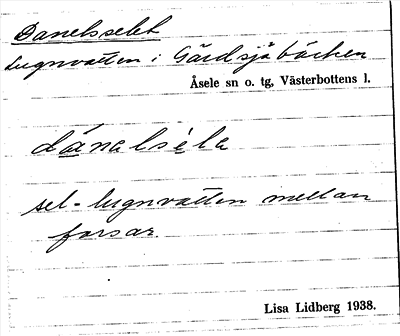 Danelsselet
Lugnvatten i Gårdsjöbäcken
Åsele sn o. tg, Västerbottens l.
dánalsèla
sel = lugnvatten mellan
forsar.
Lisa Lidberg 1938.